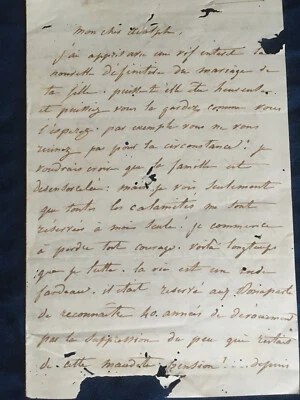 mon cher Adolph.
j'ai appris avec un vif intérêt la
nouvelle définitive du mariage de
ta fille. puisse-t-elle être heureuse
et puissiez vous la garder comme vous
l'espérez. par exemple vous ne vous
ruinez pas pour la circonstance! je
voudrais croire que la famille est
désensorcelée: mais je vois seulement
que toutes les calamités me sont
réservées à moi seule! je commence
à perdre tout courage. voilà longtemps
que je lutte. la vie est un rude
fardeau. il était réservé aux Bonaparte
de reconnaître 40. années de dévouement
par la suppression du peu qui restait
de cette maudite pension!... depuis